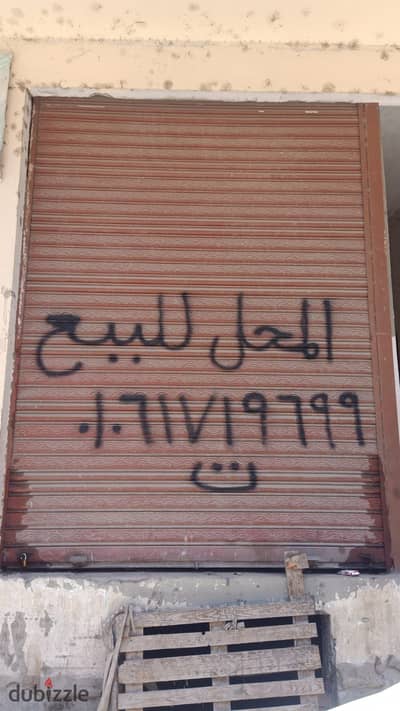 المحل للبيع
٠١٠٦١٧١٩٦٩٩
ت
dubizzle